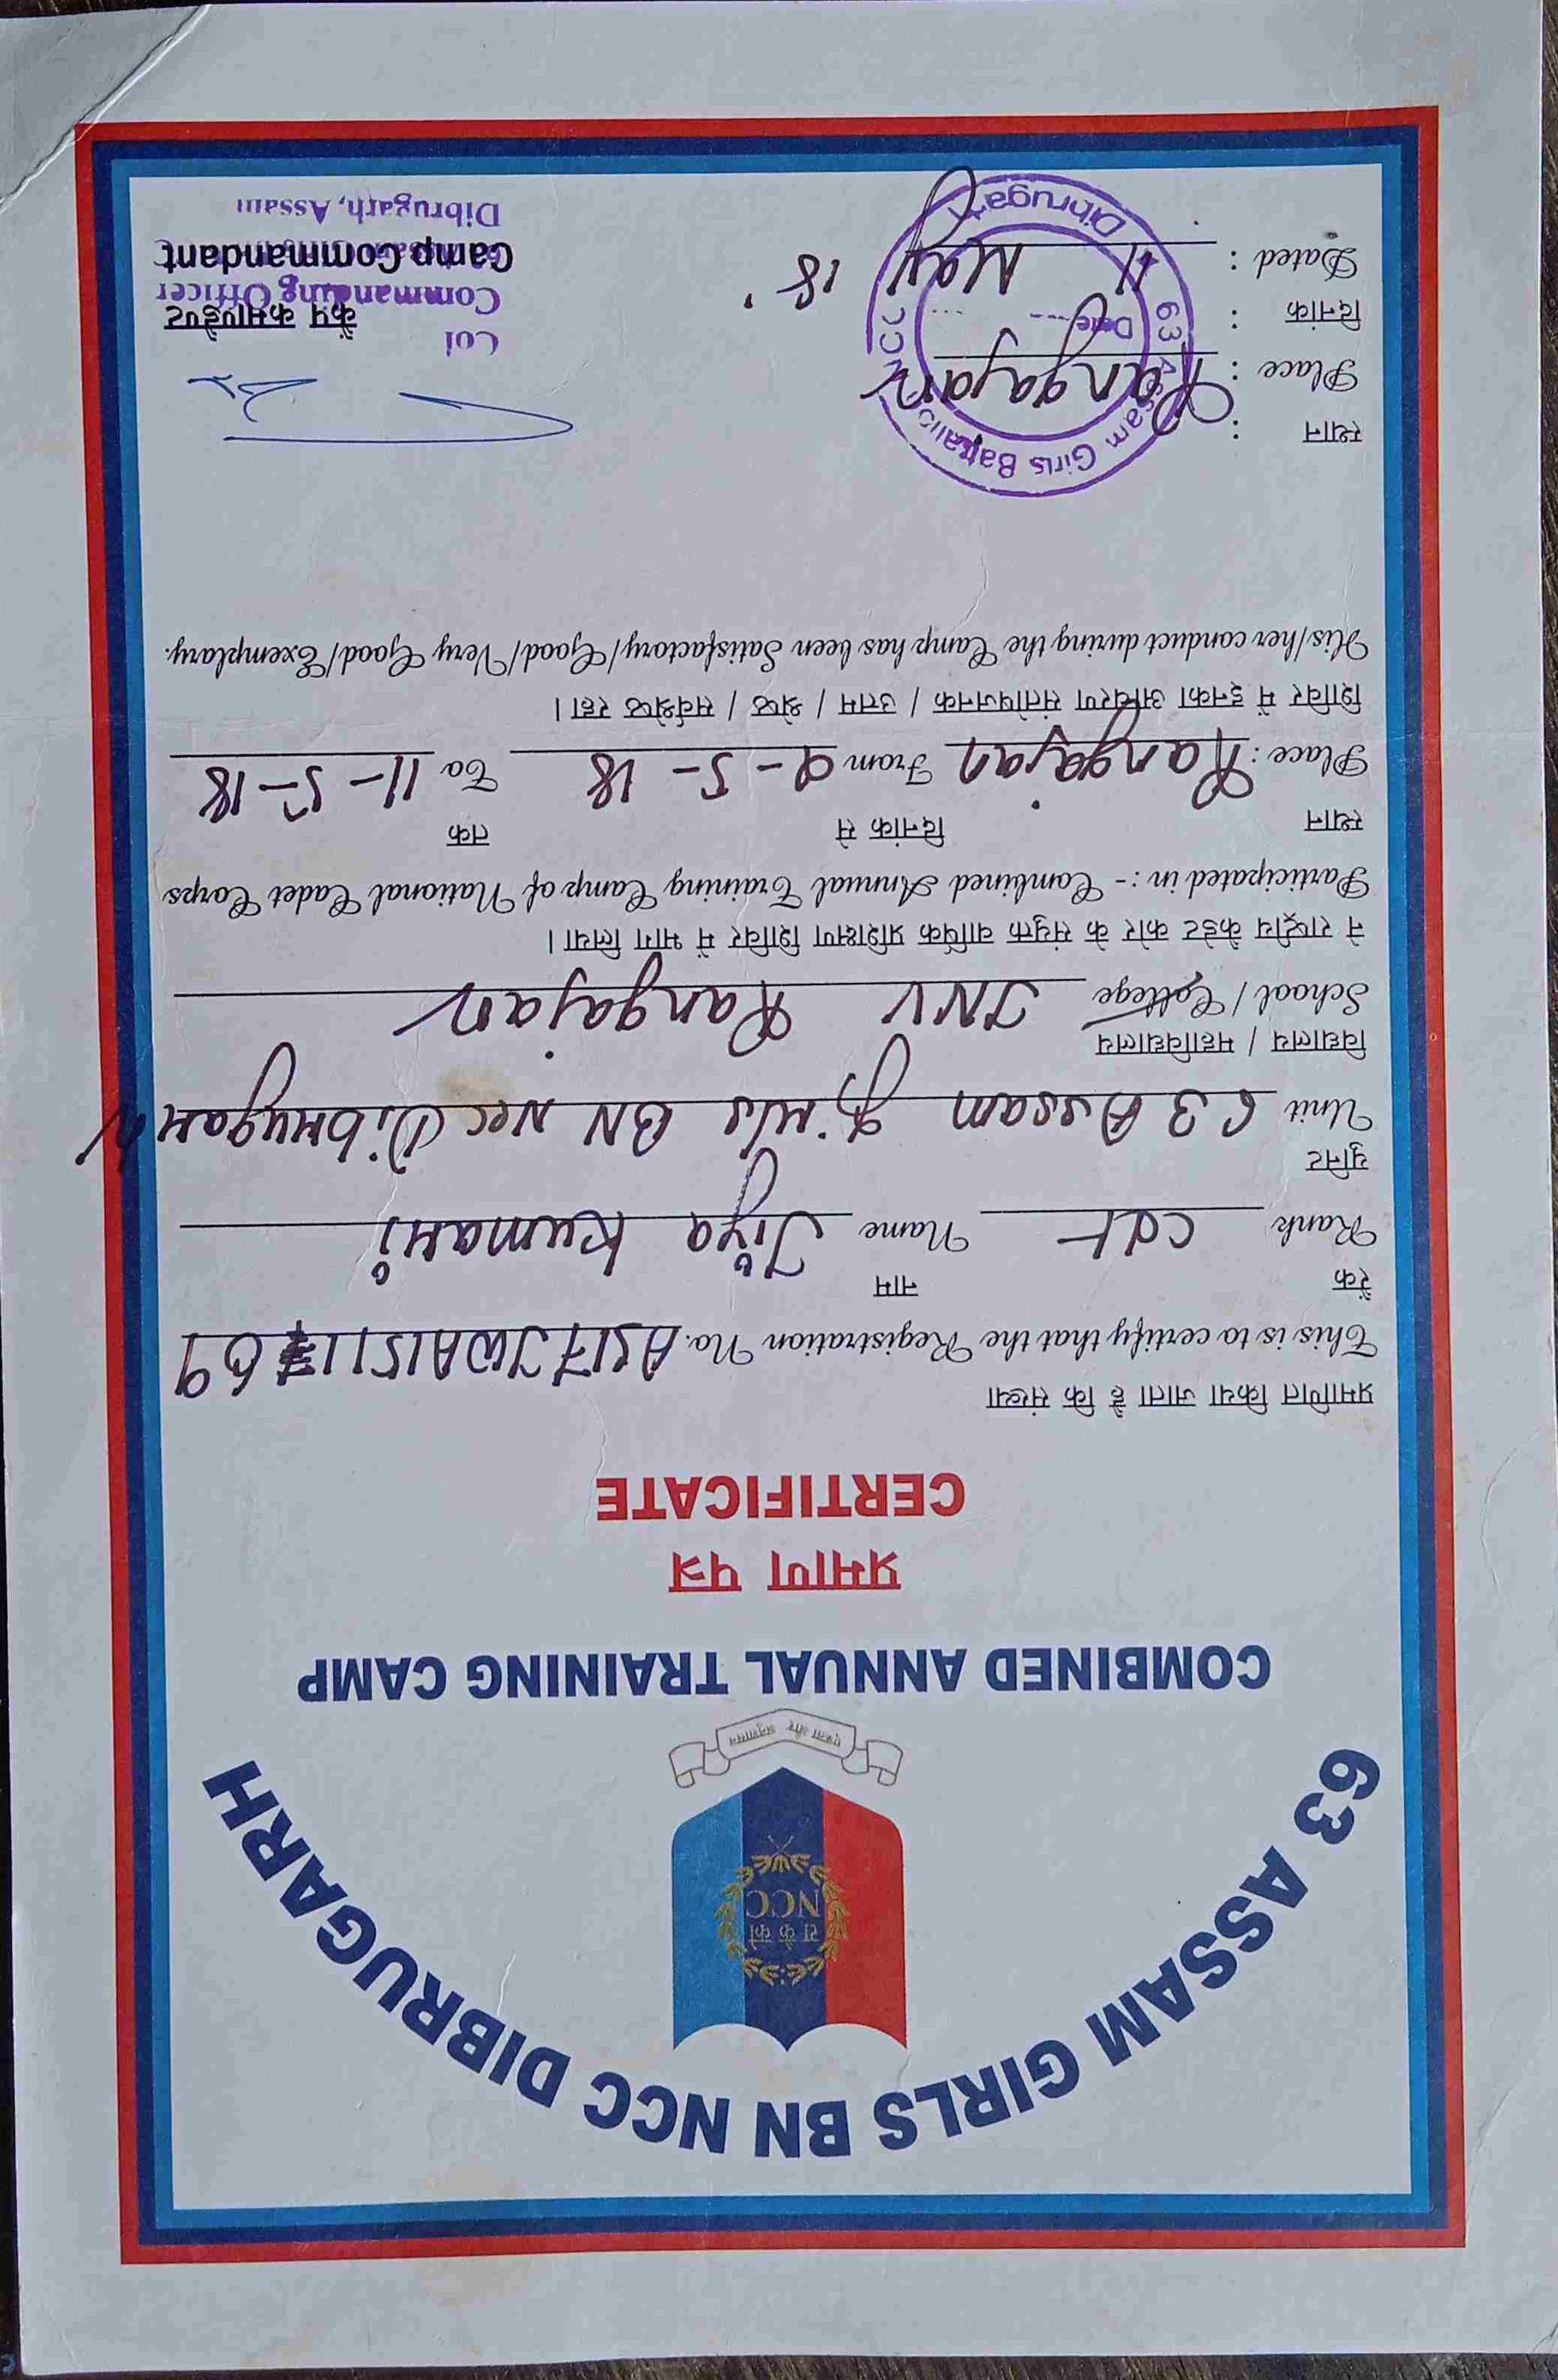 63 ASSAM GIRLS BN NCC DIBRUGARH
रा कै को
NCC
एकता और अनुशासन
COMBINED ANNUAL TRAINING CAMP
प्रमाण पत्र
CERTIFICATE
प्रमाणित किया जाता है कि संख्या
This is to certify that the Registration No.
रैंक नाम
Rank Cdt Name Jiya Kumari
युनिट
Unit 63 Assam girls BN NCC Dibrugarh
विद्यालय / महाविद्यालय
School / College JNV Rangajan
ने राष्ट्रीय कैडेट कोर के संयुक्त वार्षिक प्रशिक्षण शिविर में भाग लिया।
Participated in :- Combined Annual Training Camp of National Cadet Corps
स्थान दिनांक से तक
Place : Rangajan From 2-5-18 To 11-5-18
शिविर में इनका आचरण संतोषजनक / उत्तम / श्रेष्ठ / सर्वश्रेष्ठ रहा।
His/her conduct during the Camp has been Satisfactory/Good/Very Good/Exemplary.
स्थान :
Place : Rangajan
दिनांक :
Dated : 11 May 18
63 Assam Girls Battalion NCC
Date
Dibrugarh
Col
कैंप कमाण्डेण्ट
Commanding Officer
Camp Commandant
Dibrugarh, Assam